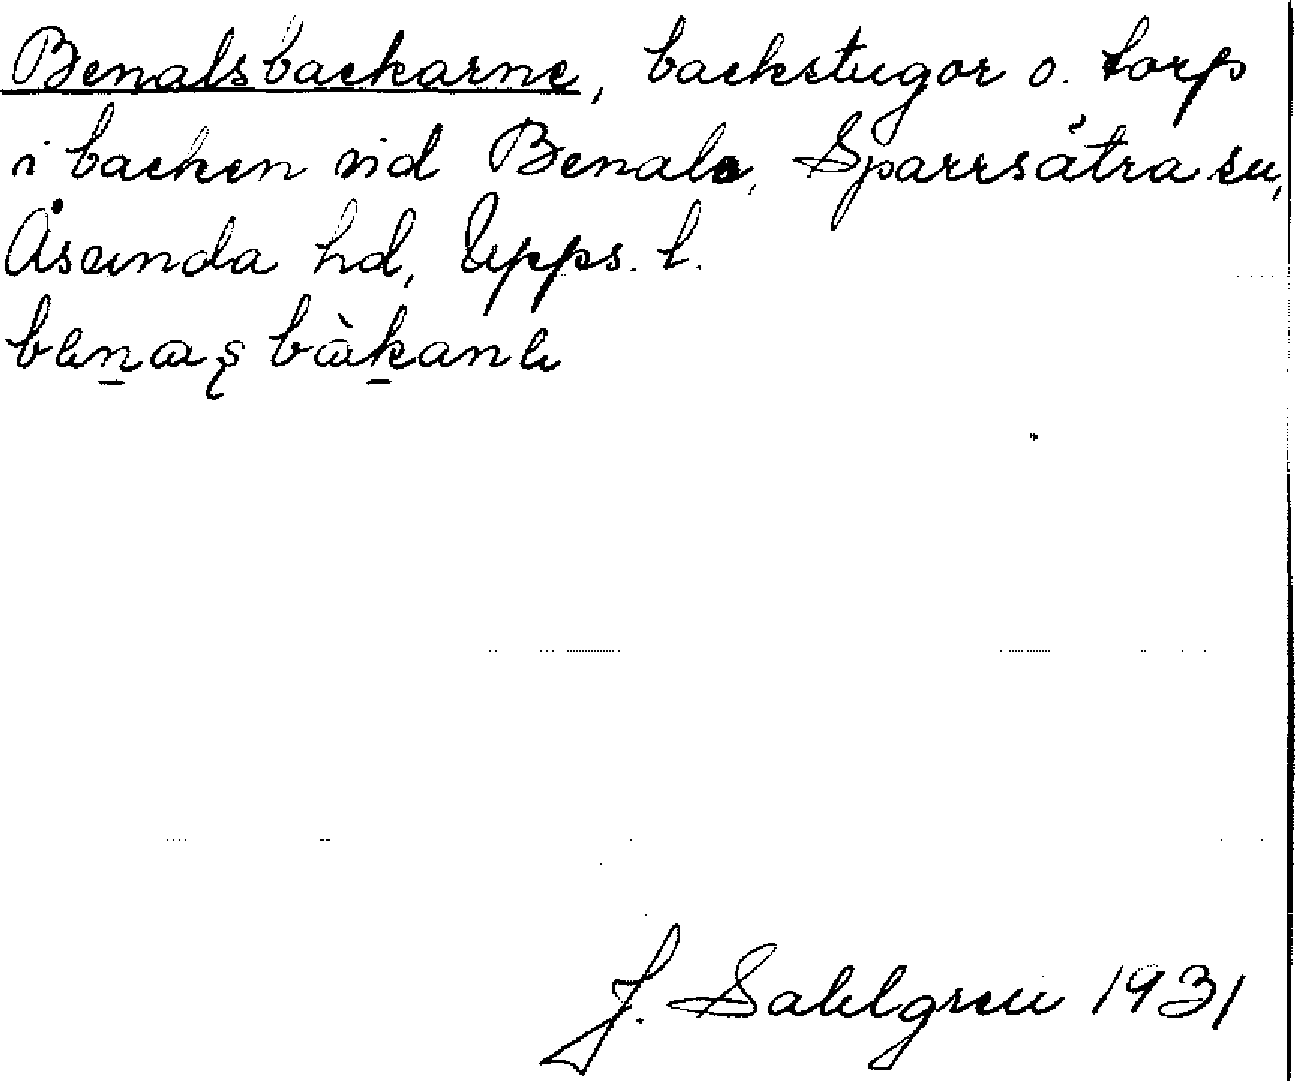 Benalsbackarne, backstugor o. torp
i backen vid Benala, Sparrsätra sn,
Åsunda hd, Upps. l.
J. Sahlgren 1931